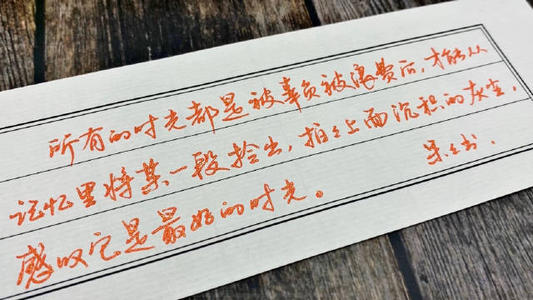 所有的时光都是被辜负被浪费后，才能从
记忆里将某一段拾出，拍拍上面沉积的灰尘，
感叹它是最好的时光。